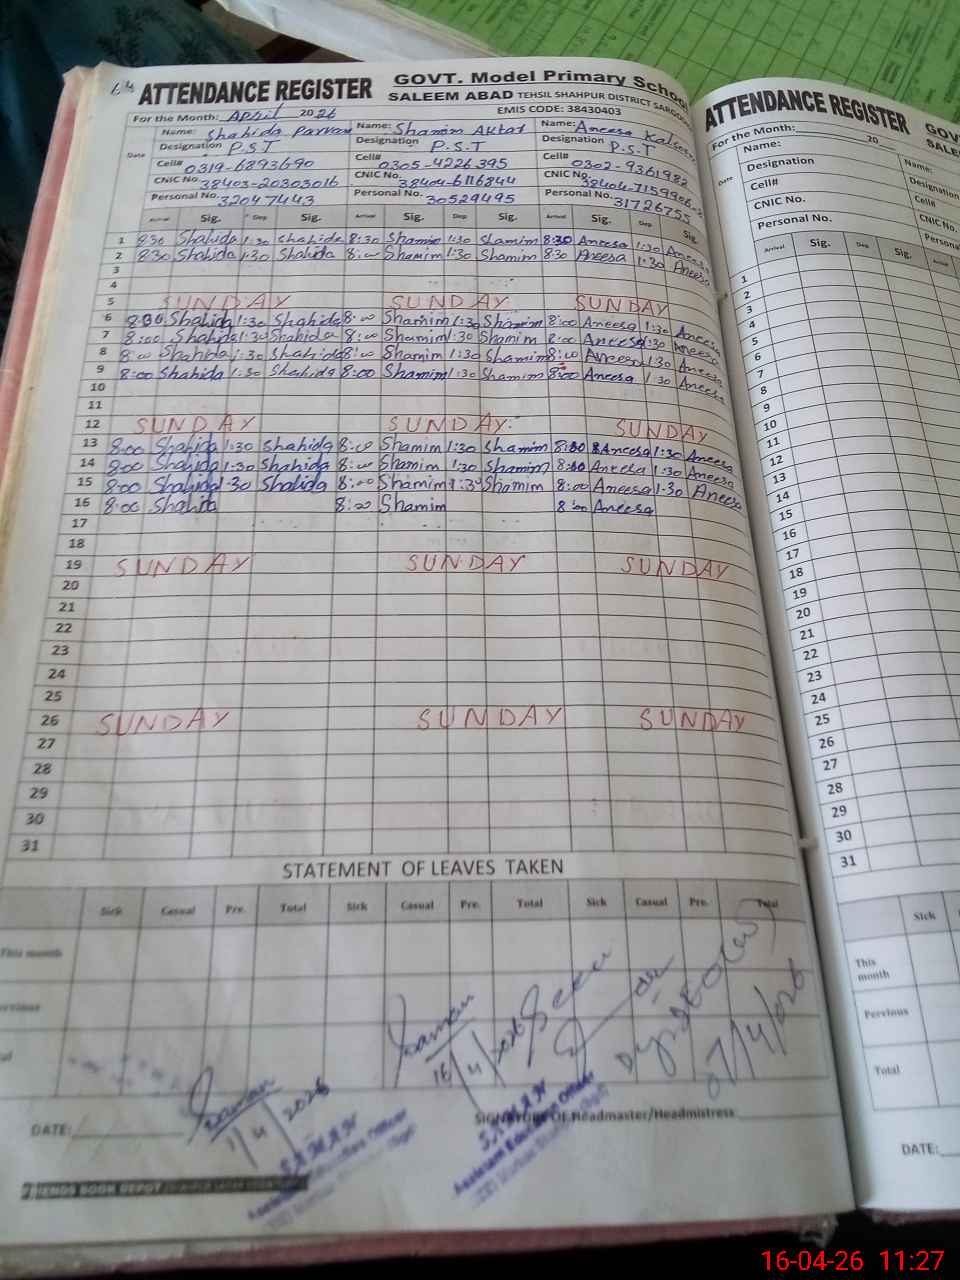 64 ATTENDANCE REGISTER GOVT. Model Primary School
SALEEM ABAD TEHSIL SHAHPUR DISTRICT SARGODHA
For the Month: April 2026 EMIS CODE: 38430403
Date Name: Shahida Parveen Name: Shamim Akhtar Name: Aneesa Kalsoom
Designation P.S.T Designation P.S.T Designation P.S.T
Cell# 0319-6893690 Cell# 0305-4226395 Cell# 0302-9361982
CNIC No. 38403-20303016 CNIC No. 38404-6116844 CNIC No. 38404-71599068
Personal No. 32047443 Personal No. 30529495 Personal No. 31726755
Arrival Sig. Dep Sig. Arrival Sig. Dep Sig. Arrival Sig. Dep Sig.
1 8:30 Shahida 1:30 Shahida 8:30 Shamim 1:30 Shamim 8:30 Aneesa 1:30 Aneesa
2 8:30 Shahida 1:30 Shahida 8:00 Shamim 1:30 Shamim 8:30 Aneesa 1:30 Aneesa
3
4
5 SUNDAY SUNDAY SUNDAY
6 8:00 Shahida 1:30 Shahida 8:00 Shamim 1:30 Shamim 8:00 Aneesa 1:30 Aneesa
7 8:00 Shahida 1:30 Shahida 8:00 Shamim 1:30 Shamim 8:00 Aneesa 1:30 Aneesa
8 8:00 Shahida 1:30 Shahida 8:00 Shamim 1:30 Shamim 8:00 Aneesa 1:30 Aneesa
9 8:00 Shahida 1:30 Shahida 8:00 Shamim 1:30 Shamim 8:00 Aneesa 1:30 Aneesa
10
11
12 SUNDAY SUNDAY SUNDAY
13 8:00 Shahida 1:30 Shahida 8:00 Shamim 1:30 Shamim 8:00 Aneesa 1:30 Aneesa
14 8:00 Shahida 1:30 Shahida 8:00 Shamim 1:30 Shamim 8:00 Aneesa 1:30 Aneesa
15 8:00 Shahida 1:30 Shahida 8:00 Shamim 1:30 Shamim 8:00 Aneesa 1:30 Aneesa
16 8:00 Shahida 8:00 Shamim 8:00 Aneesa
17
18
19 SUNDAY SUNDAY SUNDAY
20
21
22
23
24
25
26 SUNDAY SUNDAY SUNDAY
27
28
29
30
31
STATEMENT OF LEAVES TAKEN
Sick Casual Pre. Total Sick Casual Pre. Total Sick Casual Pre. Total
This month
Saman 16/4/2026
07/4/026
Saman 1/4/2026
SAMAN
Assistant Education Officer
SAMAN
Assistant Education Officer
DATE: SIGNATURE OF Headmaster/Headmistress
FRIENDS BOOK DEPOT
ATTENDANCE REGISTER
For the Month: 20
Date Name: Name:
Designation Designation
Cell# Cell#
CNIC No. CNIC No.
Personal No.
Arrival Sig. Dep Sig.
1
2
3
4
5
6
7
8
9
10
11
12
13
14
15
16
17
18
19
20
21
22
23
24
25
26
27
28
29
30
31
Sick
This month
Pervious
Total
DATE:
16-04-26 11:27